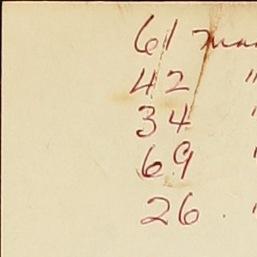 61
42 "
34 "
69 "
26 . "